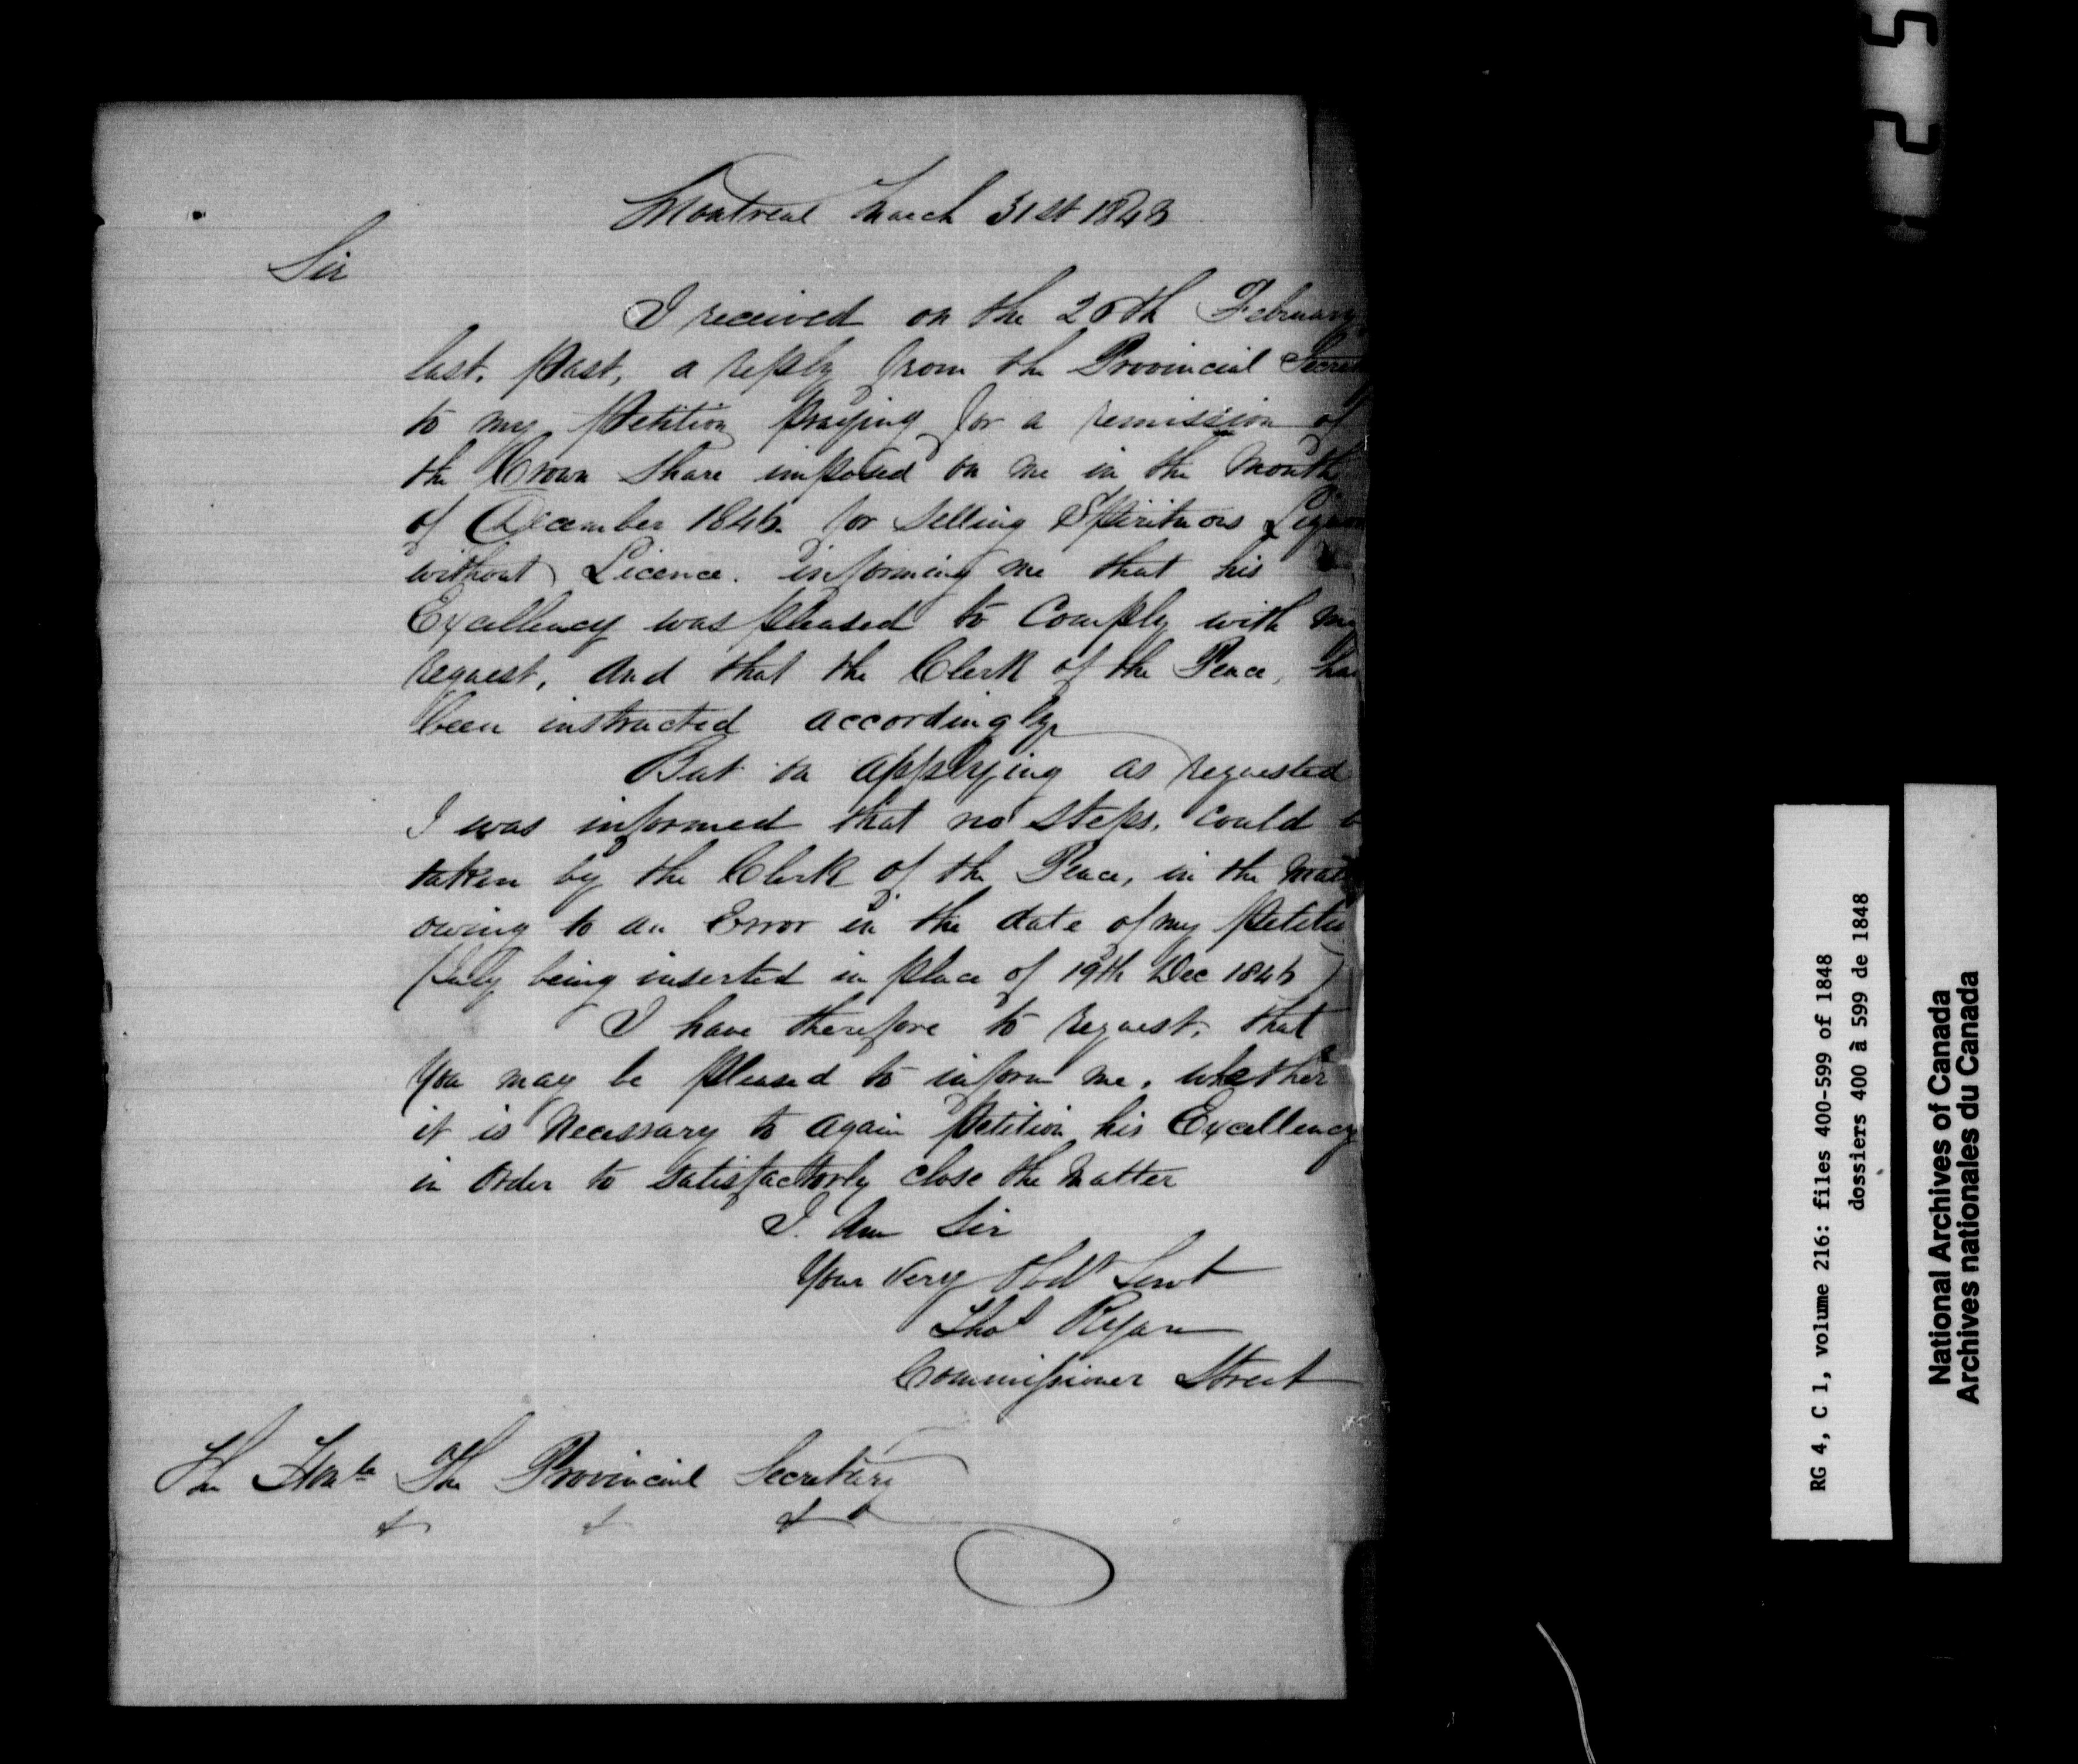 Montreal March 31st 1848
Sir
I received on the 26th February
last. past, a reply from the Provincial Secret
to my Petition praying for a remission of
the Crown Share imposed on me in the Month
of December 1846. for Selling Spirituous Liquor
without Licence. informing me that his
Excellency was pleased to Comply with my
request, And that the Clerk of the Peace, had
been instructed accordingly
But on applying as requested
I was informed that no Steps, Could b
taken by the Clerk of the Peace, in the Matt
owing to an Error in the date of my Petitio
(July being inserted in place of 19th Dec 1846)
I have therefore to request, that
You may be pleased to inform me, whether
it is Necessary to again Petition his Excellency
in Order to Satisfactorly close the Matter
I. Am Sir
Your Very Obdt Servt
Thos Ryan
Commissioner Street
The Honble The Provincial Secretary
& & &
RG 4, C 1, volume 216: files 400-599 of 1848
dossiers 400 à 599 de 1848
National Archives of Canada
Archives nationales du Canada